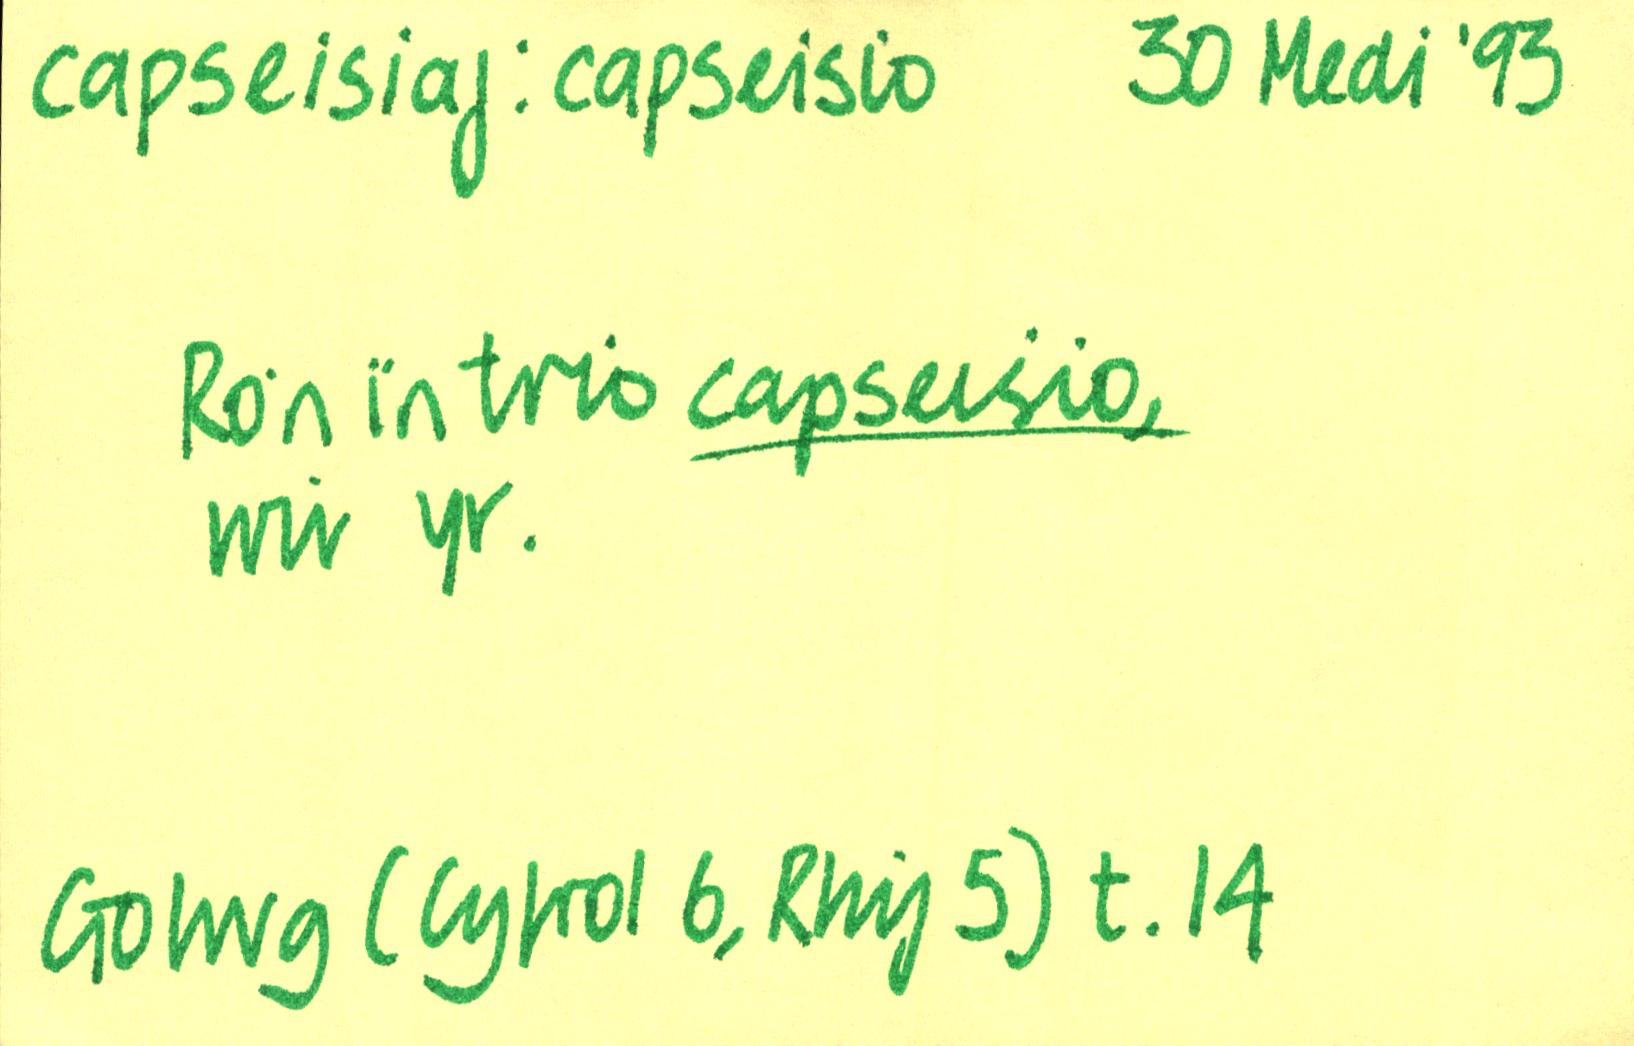 capseisiaf: capseisio 30 Medi '93
Ro'n i'n trio capseisio,
wir yr.
Golwg (Cyfrol 6, Rhif 5) t. 14